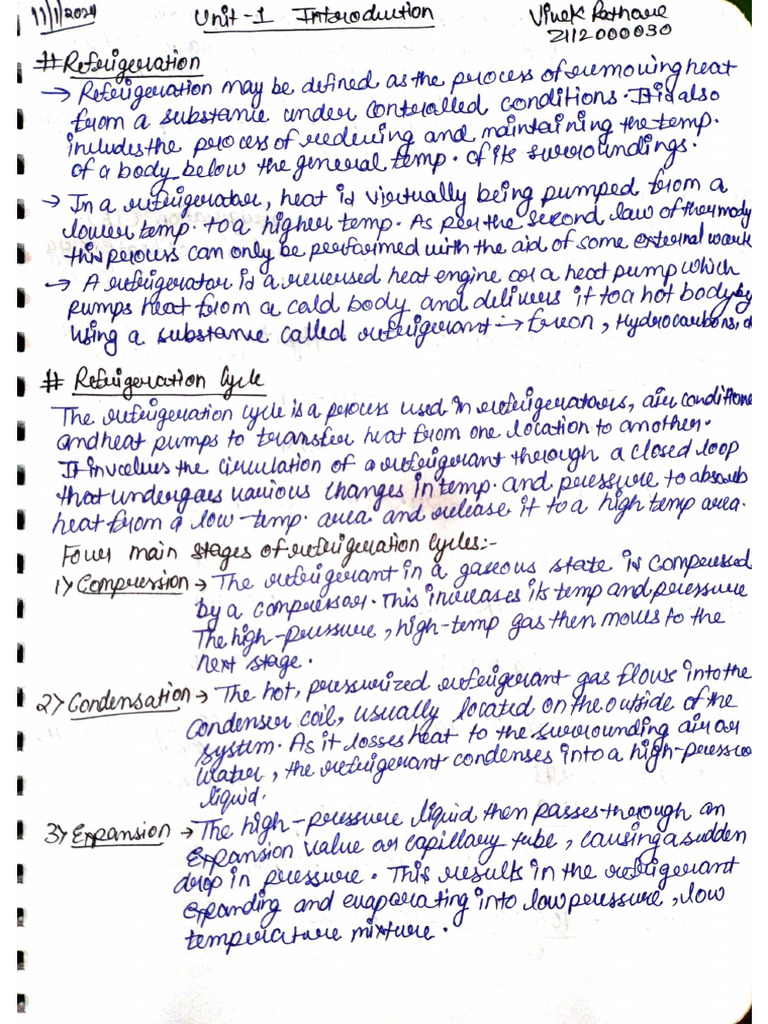 11/1/2024 Unit-1 Introduction Vivek Rathore
2112000030
# Refrigeration
→ Refrigeration may be defined as the process of removing heat
from a substance under controlled conditions. It is also
includes the process of reducing and maintaining the temp.
of a body below the general temp. of its surroundings.
→ In a refrigerator, heat is virtually being pumped from a
lower temp. to a higher temp. As per the second law of thermody
this process can only be performed with the aid of some external work
→ A refrigerator is a reversed heat engine or a heat pump which
pumps heat from a cold body and delivers it to a hot body by
using a substance called refrigerant → freon, Hydrocarbons,
# Refrigeration Cycle
The refrigeration cycle is a process used in refrigerators, air conditione
and heat pumps to transfer heat from one location to another.
It involves the circulation of a refrigerant through a closed loop
that undergoes various changes in temp. and pressure to absorb
heat from a low-temp. area and release it to a high temp area.
Four main stages of refrigeration cycles:-
1) Compression → The refrigerant in a gaseous state is compressed
by a compressor. This increases its temp and pressure
The high-pressure, high-temp gas then moves to the
next stage.
2) Condensation → The hot, pressurized refrigerant gas flows into the
condenser coil, usually located on the outside of the
system. As it losses heat to the surrounding air or
water, the refrigerant condenses into a high-pressure
liquid.
3) Expansion → The high-pressure liquid then passes through an
expansion value or capillary tube, causing a sudden
drop in pressure. This results in the refrigerant
expanding and evaporating into low pressure, low
temperature mixture.